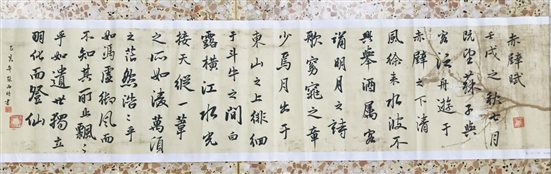 赤壁賦
壬戌之秋七月
既望蘇子與
客泛舟遊于
赤壁之下清
風徐来水波不
興舉酒属客
誦明月之詩
歌窈窕之章
少焉月出于
東山之上徘徊
于斗牛之间白
露横江水光
接天縱一葦
之所如凌萬頃
之茫然浩浩乎
如馮虛御風而
不知其所止飄飄
乎如遺世獨立
羽化而登仙